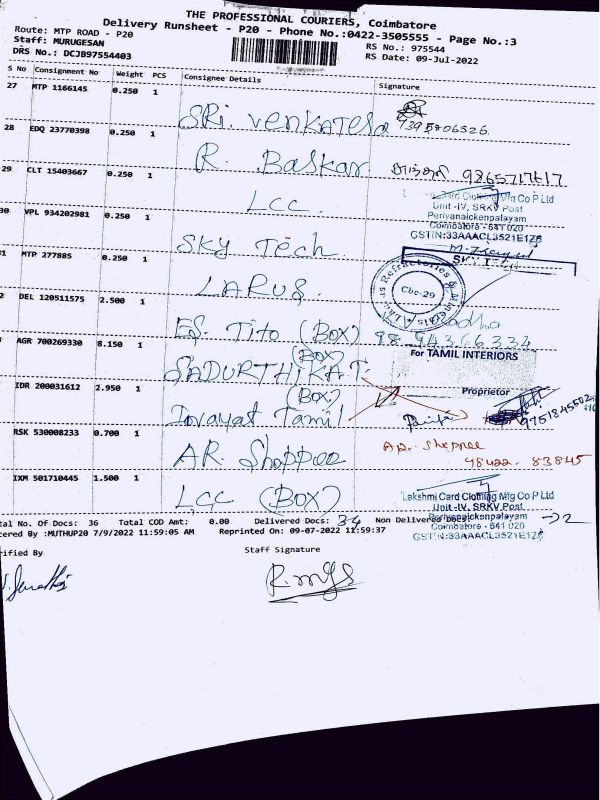 THE PROFESSIONAL COURIERS, Coimbatore
Delivery Runsheet - P20 - Phone No.:0422-3505555 - Page No.:3
Route: MTP ROAD - P20
RS No.: 975544
Staff: MURUGESAN
RS Date: 09-Jul-2022
DRS No.: DCJB97554403
S No Consignment No Weight PCS Consignee Details Signature
27 MTP 1166145 0.250 1 SRi. Venkatesa
28 EDQ 23770398 0.250 1 R. Baskar
29 CLT 15403667 0.250 1 LCC.
Card Clothing Mfg Co P Ltd
Unit-IV, SRKV Post
Periyanaickenpalayam
Coimbatore - 641 020
GSTIN:33AAACL3521E1Z6
30 VPL 934202981 0.250 1 SKY Tech
MTP 277885 0.250 1 LARUS.
Cbe-29
DEL 120511575 2.500 1 ES Tito (BOX)
98 94366334
AGR 700269330 8.150 1 (BOX)
SADURTHIKAT
For TAMIL INTERIORS
Proprietor
IDR 200031612 2.950 1 (BOX)
Tamil
9751845502
RSK 530008233 0.700 1 AR. Shoppee
AR. Shoppee
98422. 83845
IXM 501710445 1.500 1 LCC (BOX)
Lakshmi Card Clothing Mfg Co P Ltd
Unit-IV, SRKV Post
Periyanaickenpalayam
Coimbatore - 641 020
GSTIN:33AAACL3521E1Z6
tal No. Of Docs: 36 Total COD Amt: 0.00 Delivered Docs: 34 Non Delivered Docs: →2
ered By :MUTHUP20 7/9/2022 11:59:05 AM Reprinted On: 09-07-2022 11:59:37
rified By Staff Signature